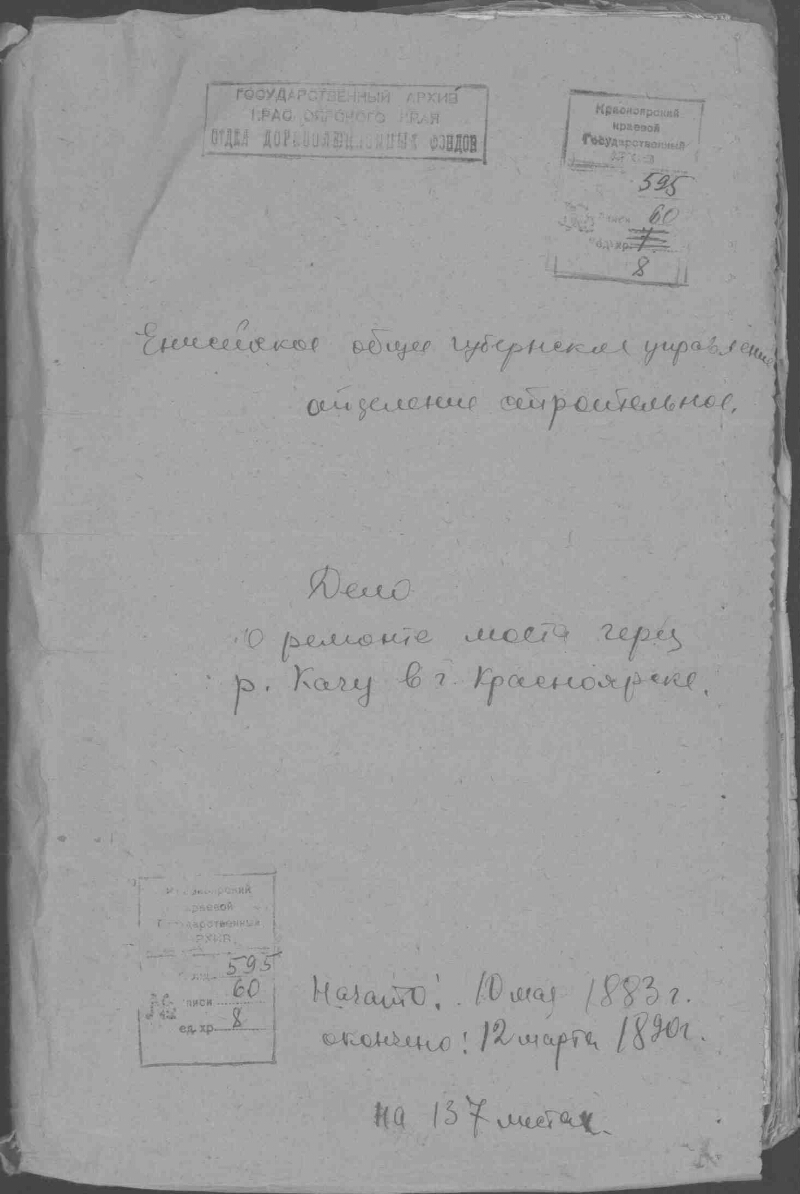 ГОСУДАРСТВЕННЫЙ АРХИВ
КРАСНОЯРСКОГО КРАЯ
Красноярский
краевой
Государственный
595
60
ед. хр. 7
8
Енисейское общее губернское управление
отделение строительное.
Дело
О ремонте моста через
р. Качу в г. Красноярске.
Красноярский
краевой
Государственный
АРХИВ
595
описи 60
ед. хр. 8
Начато: 10 мая 1883 г.
окончено: 12 марта 1890 г.
на 137 листах.